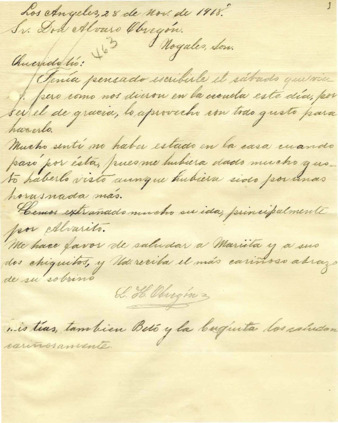 Los Angeles, 28 de Nov. de 1918.
Sr. Don Alvaro Obregón.
463
Nogales, Son.
Querido tío:
Tenía pensado escribirle el sábado que viene
pero como nos dieron en la escuela este día, por
ser el de gracia, lo aprovecho con todo gusto para
hacerlo.
Mucho sentí no haber estado en la casa cuando
pasó por ésta, pues me hubiera dado mucho gus-
to haberlo visto aunque hubiera sido por unas
horas nada más.
Hemos extrañado mucho su ida, principalmente
por Alvarito.
Me hace favor de saludar a Mariita y a sus
dos chiquitos, y Ud reciba el más cariñoso abrazo
de su sobrino
L. H. Obregón
Mis tías, tambien Beto y la los saludan
cariñosamente.